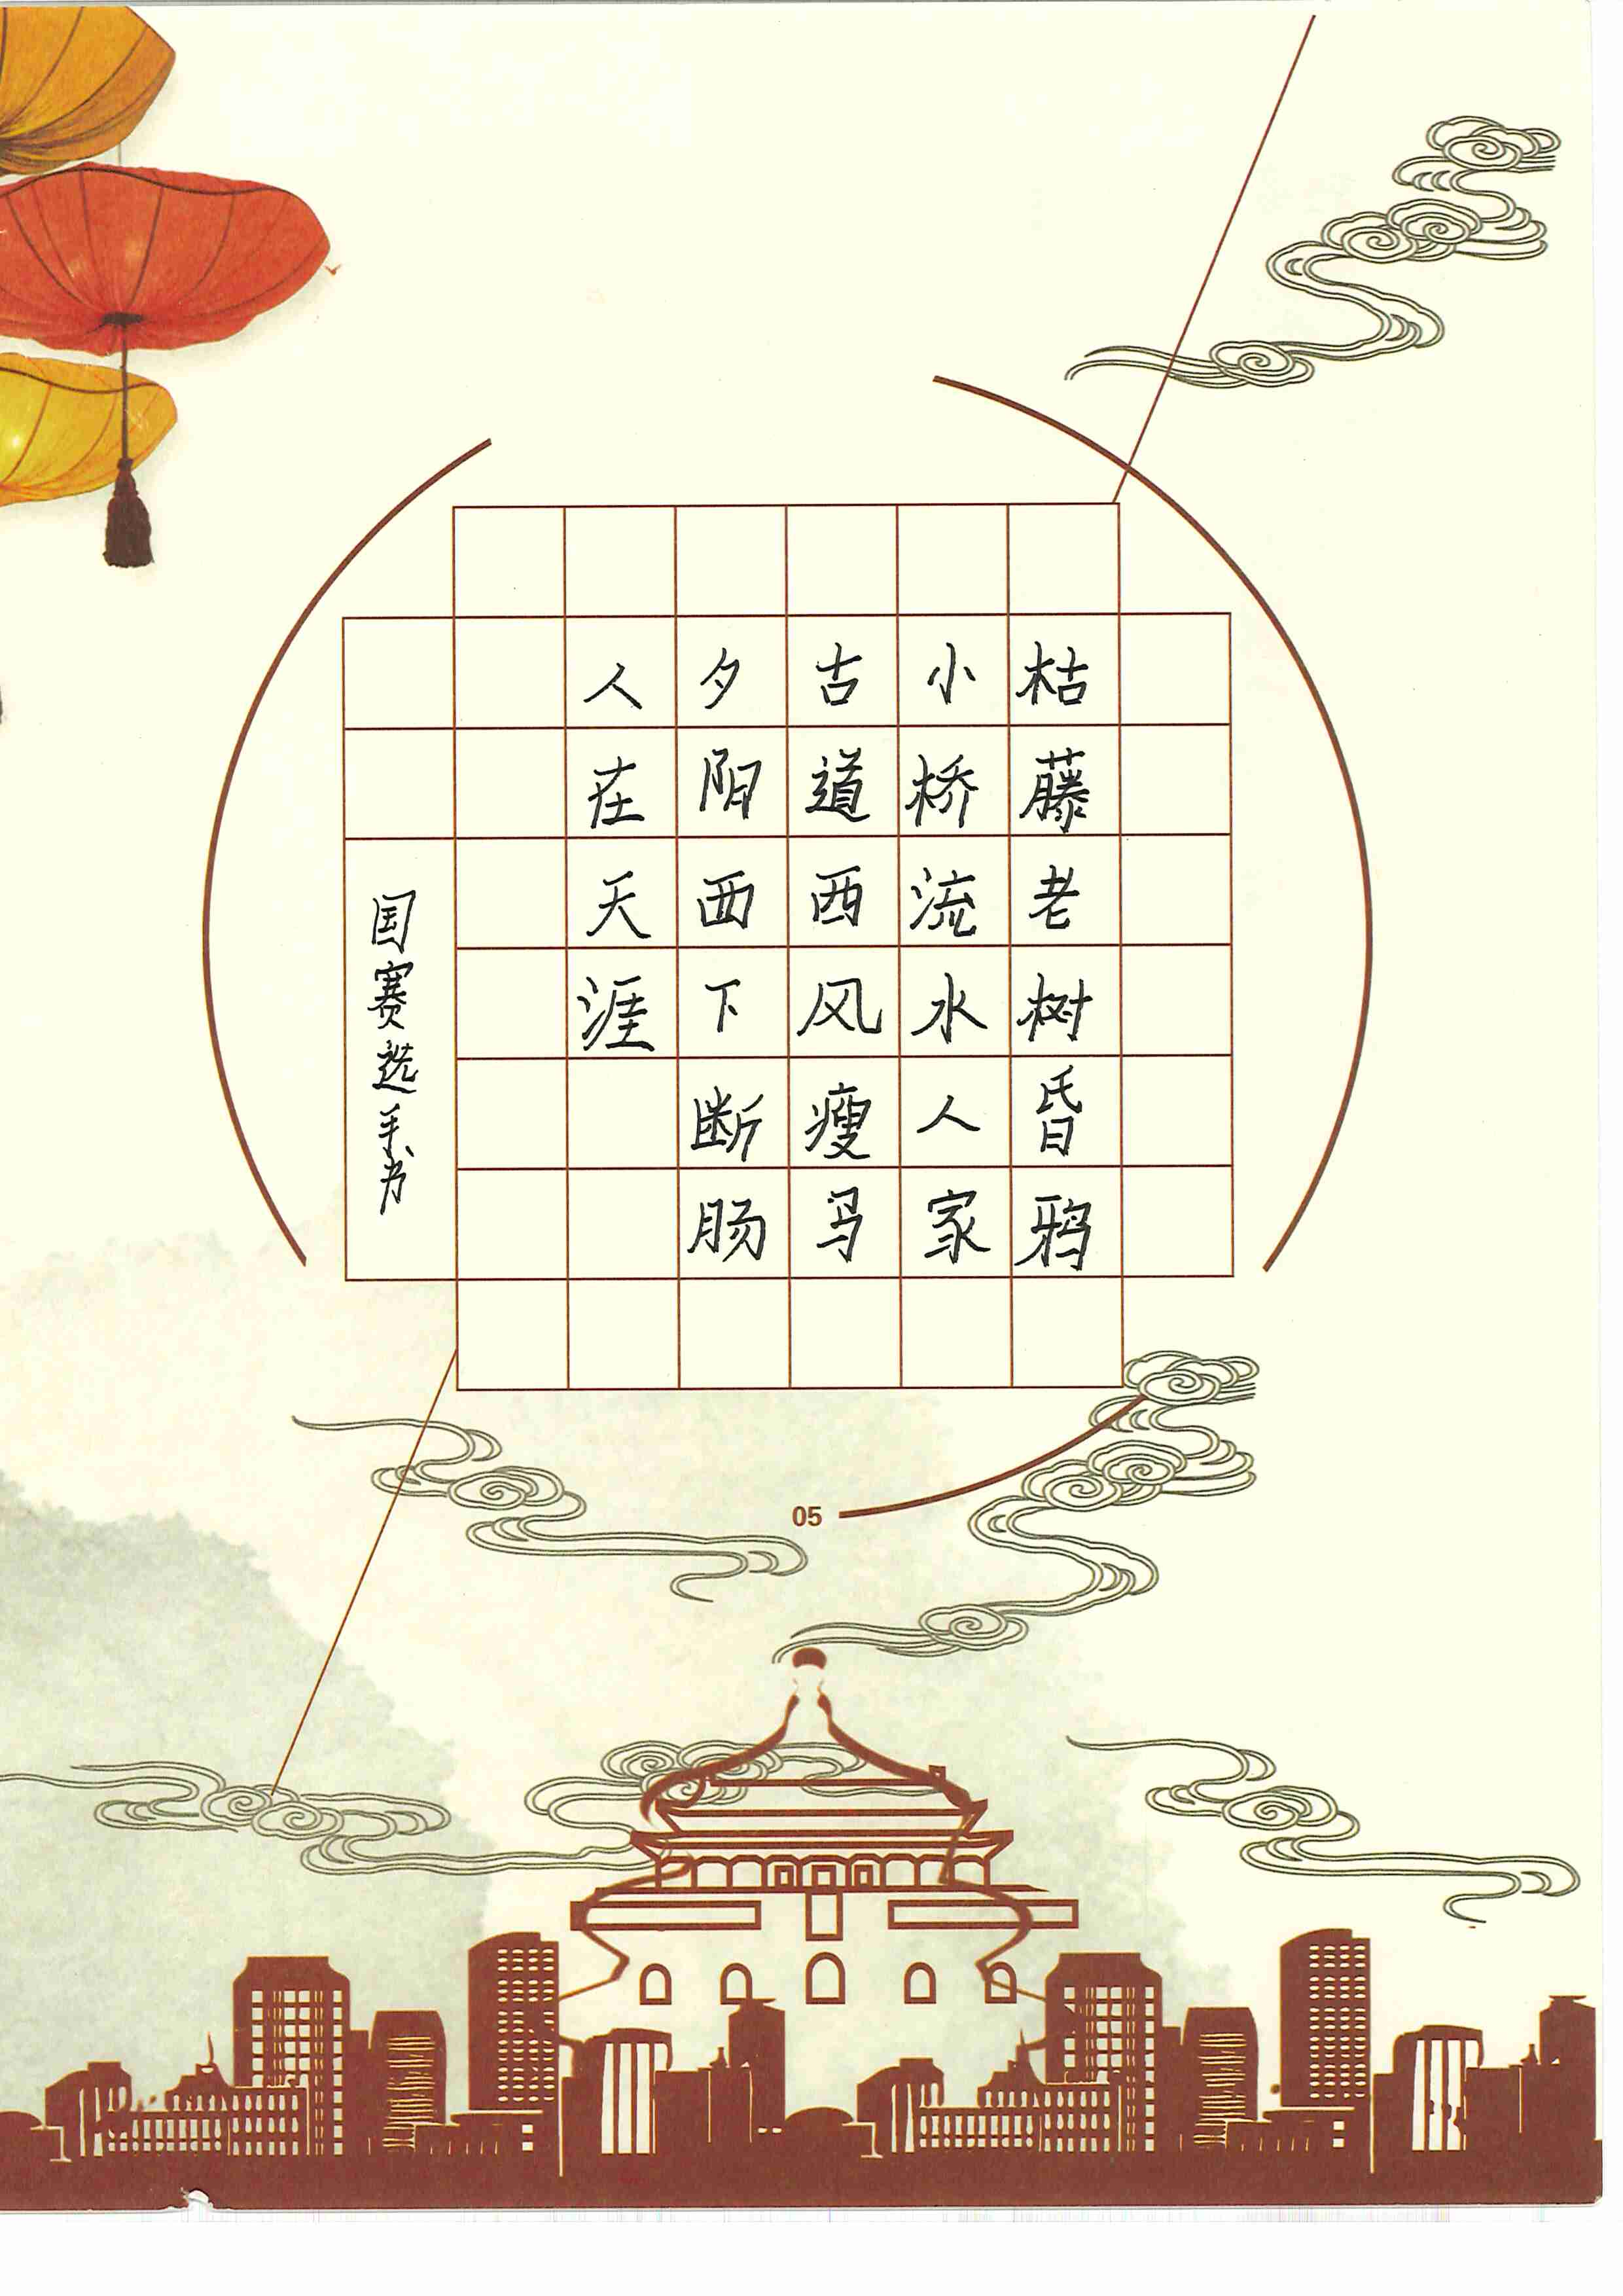 枯藤老树昏鸦
小桥流水人家
古道西风瘦马
夕阳西下断肠
人在天涯
国赛选手书
05